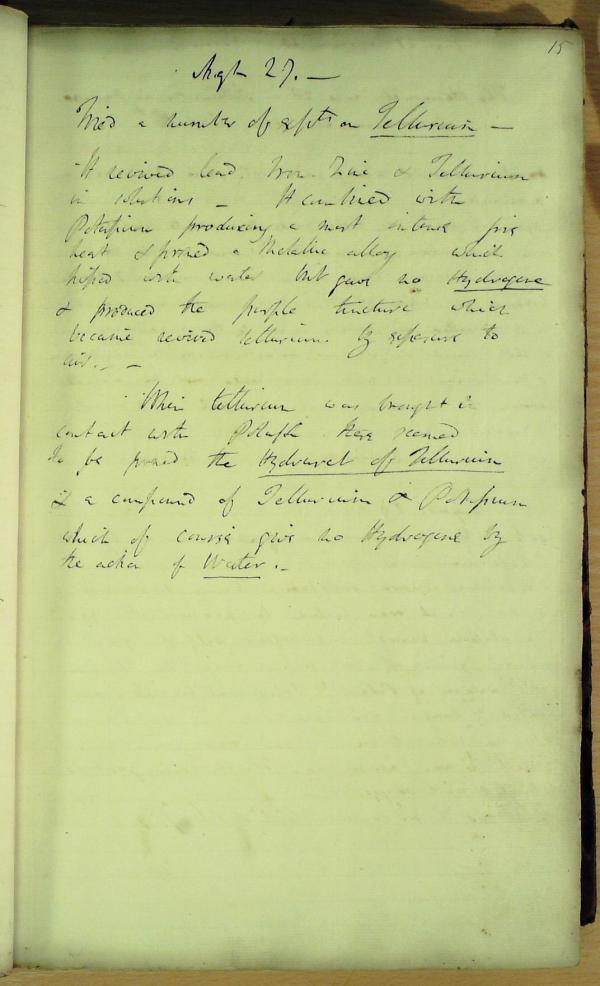 15
Augt 27. —
Tried a number of expts on Tellurium —
It revived lead Iron Zinc & Tellurium
in solutions — It combined with
Potassium producing a most intense fire
heat & formed a Metallic alloy which
with water but gave no Hydrogene
& produced the purple tincture which
became revived tellurium by exposure to
air. —
When tellurium was brought in
contact with Potash there seemed
to be formed the Hydruret of Tellurium
& a compound of Tellurium & Potassium
which of course give no Hydrogene by
the action of Water. —